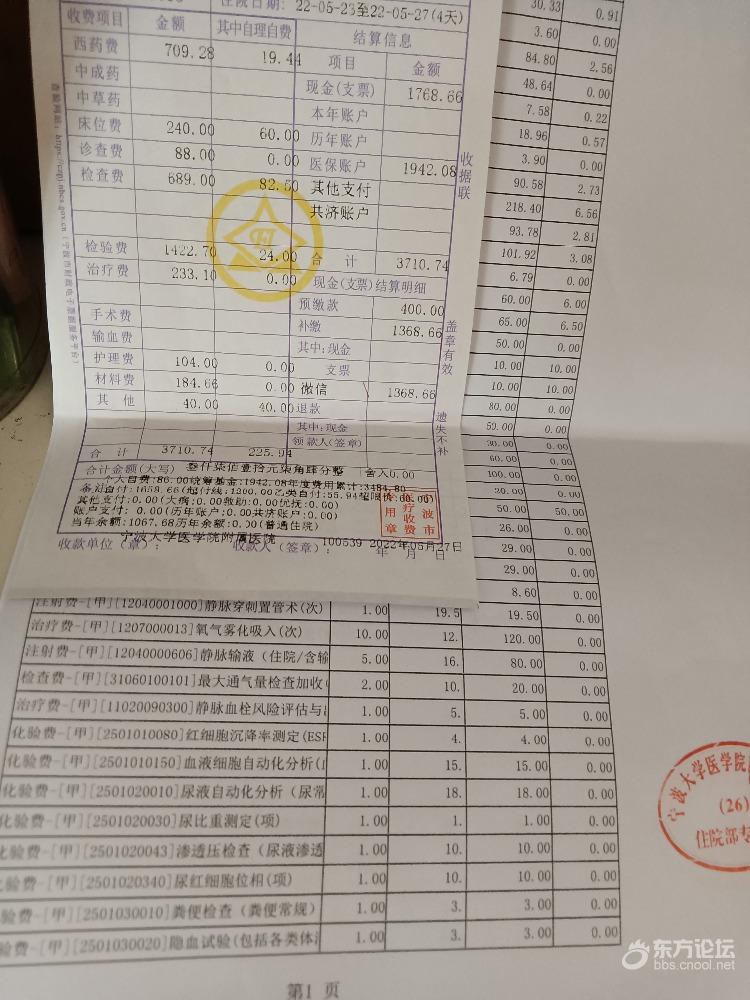 住院日期: 22-05-23至22-05-27(4天)
收费项目 金额 其中自理自费 结算信息
西药费 709.28 19.44 项目 金额
中成药 现金(支票) 1768.66
中草药 本年账户
床位费 240.00 60.00 历年账户
诊查费 88.00 0.00 医保账户 1942.08
检查费 689.00 82.50 其他支付
共济账户
检验费 1422.70 24.00 合 计 3710.74
治疗费 233.10 0.00 现金(支票)结算明细
预缴款 400.00
手术费 补缴 1368.66
输血费 其中:现金
护理费 104.00 0.00 支票
材料费 184.66 0.00 微信 1368.66
其 他 40.00 40.00 退款
其中:现金
合 计 3710.74 225.94 领款人(签章)
合计金额(大写) 叁仟柒佰壹拾元柒角肆分整 舍入0.00
个人自费:86.00统筹基金:1942.08年度费用累计:3484.80
自付:1658.66(起付线:1200.00乙类自付:55.94超限价:60.00)
其他支付:0.00(大病:0.00救助:0.00优抚:0.00)
账户支付: 0.00(历年账户:0.00共济账户:0.00)
当年余额:1067.68历年余额:0.00(普通住院)
宁波大学医学院附属医院
收款单位(章): 收款人(签章): 100539 2022年05月27日
年 月 日
收据联
盖章有效
遗失不补
波市
医疗收费
专用章
30.33 0.91
3.60 0.00
84.80 2.56
48.64 0.00
7.58 0.22
18.96 0.57
3.90 0.00
90.58 2.73
218.40 6.56
93.78 2.81
101.92 3.08
6.79 0.00
60.00 6.00
65.00 6.50
50.00 0.00
10.00 10.00
10.00 10.00
80.00 0.00
50.00 0.00
30.00 0.00
60.00 0.00
100.00 0.00
20.00 0.00
50.00 50.00
26.00 0.00
29.00 0.00
29.00 0.00
8.60 0.00
注射费-[甲][12040001000]静脉穿刺置管术(次) 1.00 19.5 19.50 0.00
治疗费-[甲][1207000013]氧气雾化吸入(次) 10.00 12. 120.00 0.00
注射费-[甲][12040000606]静脉输液（住院/含输 5.00 16. 80.00 0.00
检查费-[甲][31060100101]最大通气量检查加收( 2.00 10. 20.00 0.00
治疗费-[甲][11020090300]静脉血栓风险评估与 1.00 5. 5.00 0.00
化验费-[甲][2501010080]红细胞沉降率测定(ESR 1.00 4. 4.00 0.00
化验费-[甲][2501010150]血液细胞自动化分析( 1.00 15. 15.00 0.00
化验费-[甲][2501020010]尿液自动化分析（尿常 1.00 18. 18.00 0.00
化验费-[甲][2501020030]尿比重测定(项) 1.00 1. 1.00 0.00
化验费-[甲][2501020043]渗透压检查（尿液渗透 1.00 10. 10.00 0.00
化验费-[甲][2501020340]尿红细胞位相(项) 1.00 10. 10.00 0.00
验费-[甲][2501030010]粪便检查（粪便常规） 1.00 3. 3.00 0.00
验费-[甲][2501030020]隐血试验(包括各类体 1.00 3. 3.00 0.00
宁波大学医学院
(26)
住院部专
第1 页
东方论坛
bbs.cnool.net